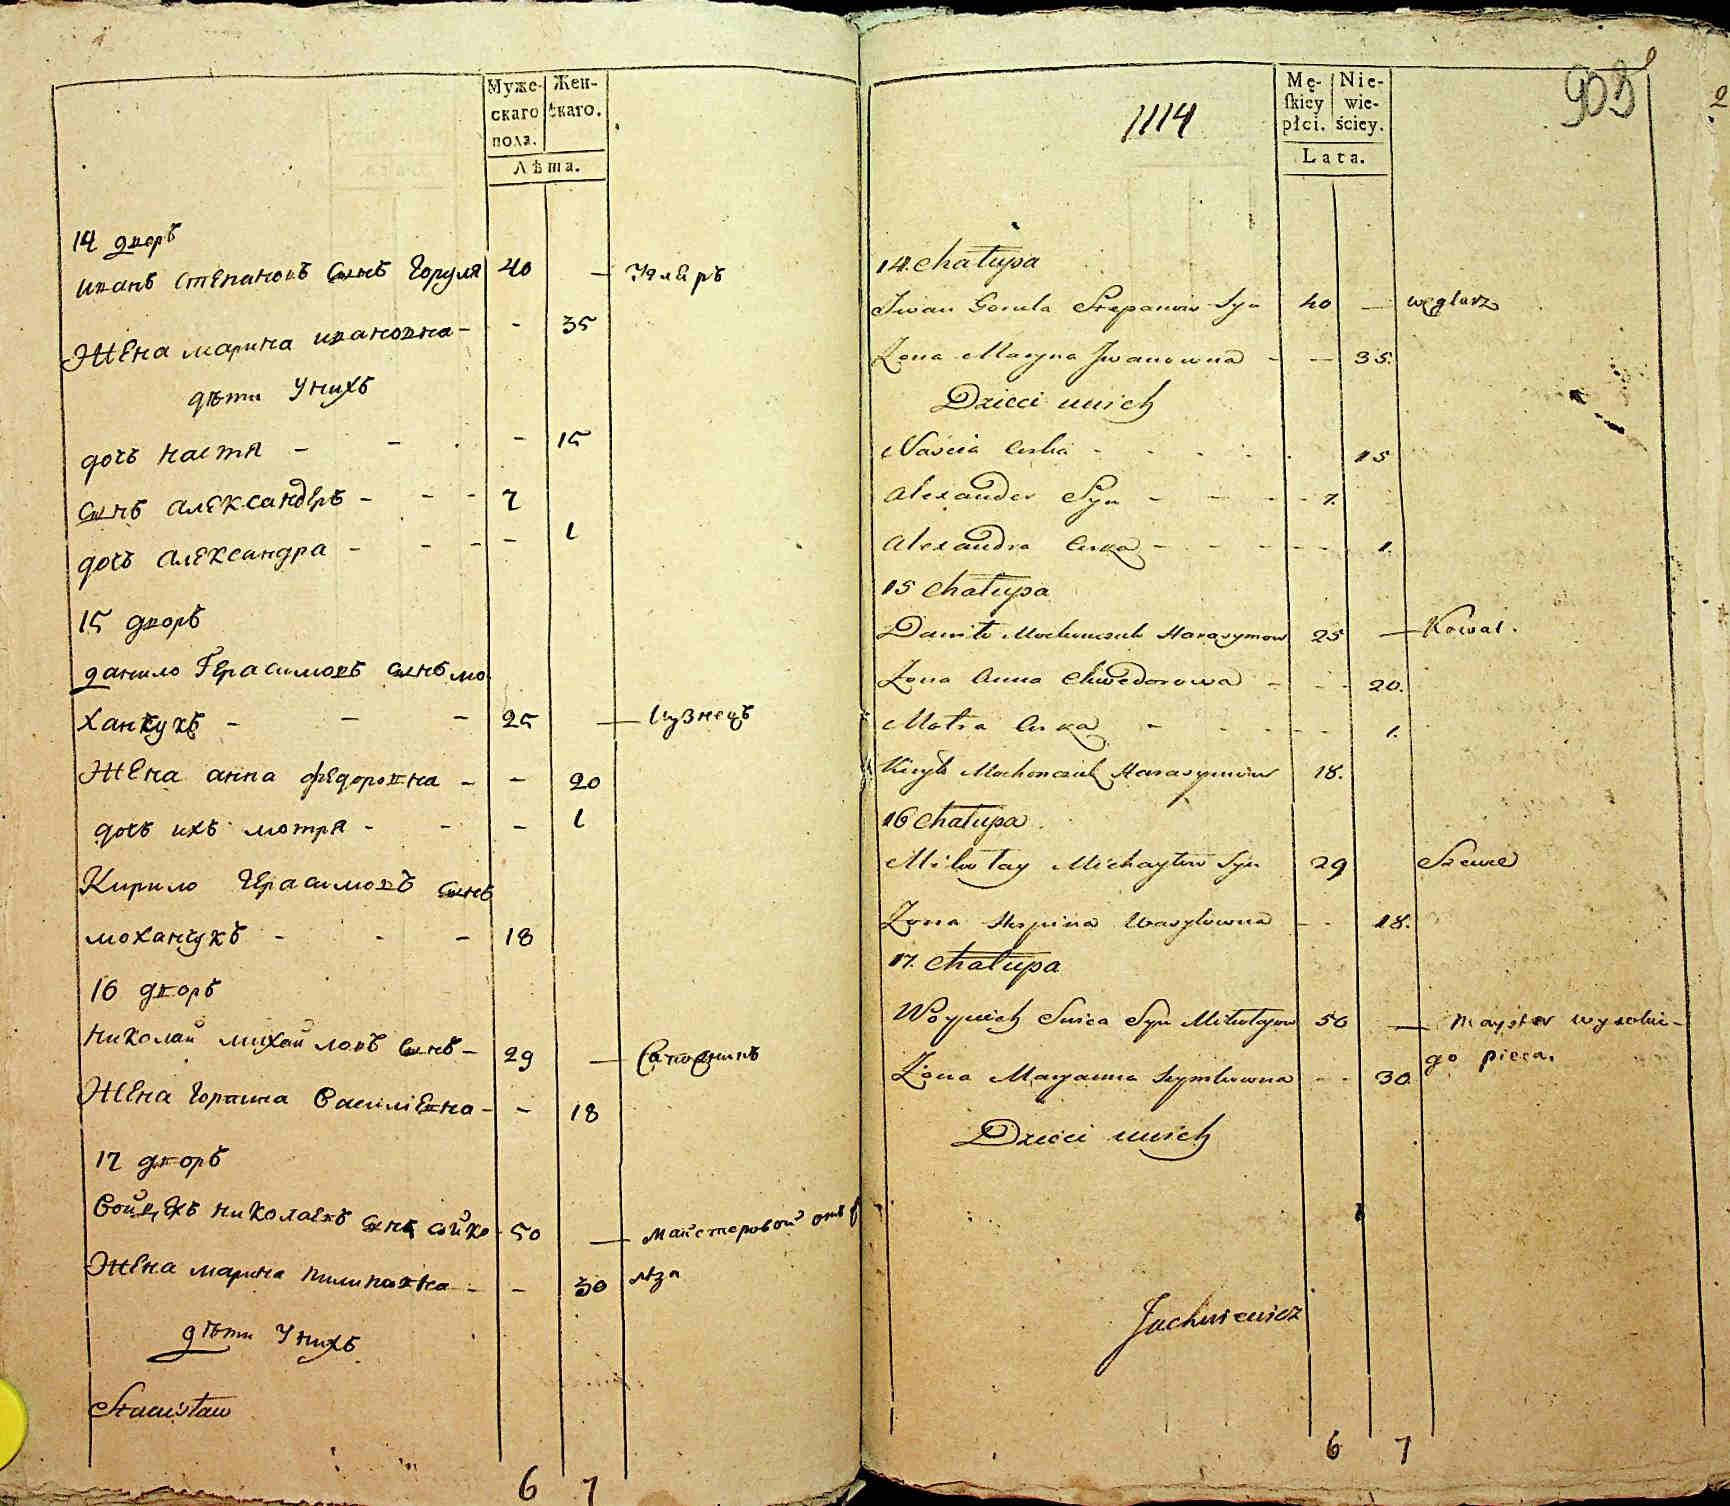 Муже-
скаго
пола.
Жен-
скаго.
Лѣта.
14 дворъ
Иванъ Степановъ Сынъ Горуля 40 — Угляръ
Жена марина ивановна - - 35
дѣти Унихъ
дочь настя - - - 15
Сынъ александеръ - - - 7
дочь александра - - - - 1
15 дворъ
данило Герасимовъ сынъ мо
ханчукъ - - - 25 — Кузнецъ
Жена анна федоровна - - 20
дочь ихъ мотря - - - 1
Кирило Герасимовъ сынъ
моханчукъ - - - 18
16 дворъ
Николай михайловъ Сынъ - 29 — Сапожникъ
Жена Василевна - - 18
17 дворъ
Войцехъ николаевъ сынъ 50 — майстеровой отъ
Жена марина пилиповна - - 30
дѣти Унихъ
Stanisław
6 7
1114
Mę-
ſkiey
płci.
Nie-
wie-
ściey.
Lata.
2
14. Chałupa
Iwan Gorula Stepanow Syn 40 — węglarz
Zona Maryna Jwanowna - - 35.
Dzieci unich
Naścia Curka - - - - 15
Alexander Syn - - - - 7.
Alexandra Curka - - - - - 1.
15 Chałupa
Daniło Mochonczuk Harasymow 25 — Kowal.
Zona Anna Chwedorowa - - - 20.
Motra Curka - - - - - 1.
Kiryło Mochonczuk Harasymow 18.
16 Chałupa
Mikołay Michayłow Syn 29 Szewc
Zona Wasylowna - - 18.
17. Chałupa
Woyciech Syn Mikołajow 50 — Mayster wysokie-
go pieca.
Zona Maryanna - - 30.
Dzieci unich
Jachniewicz
6 7